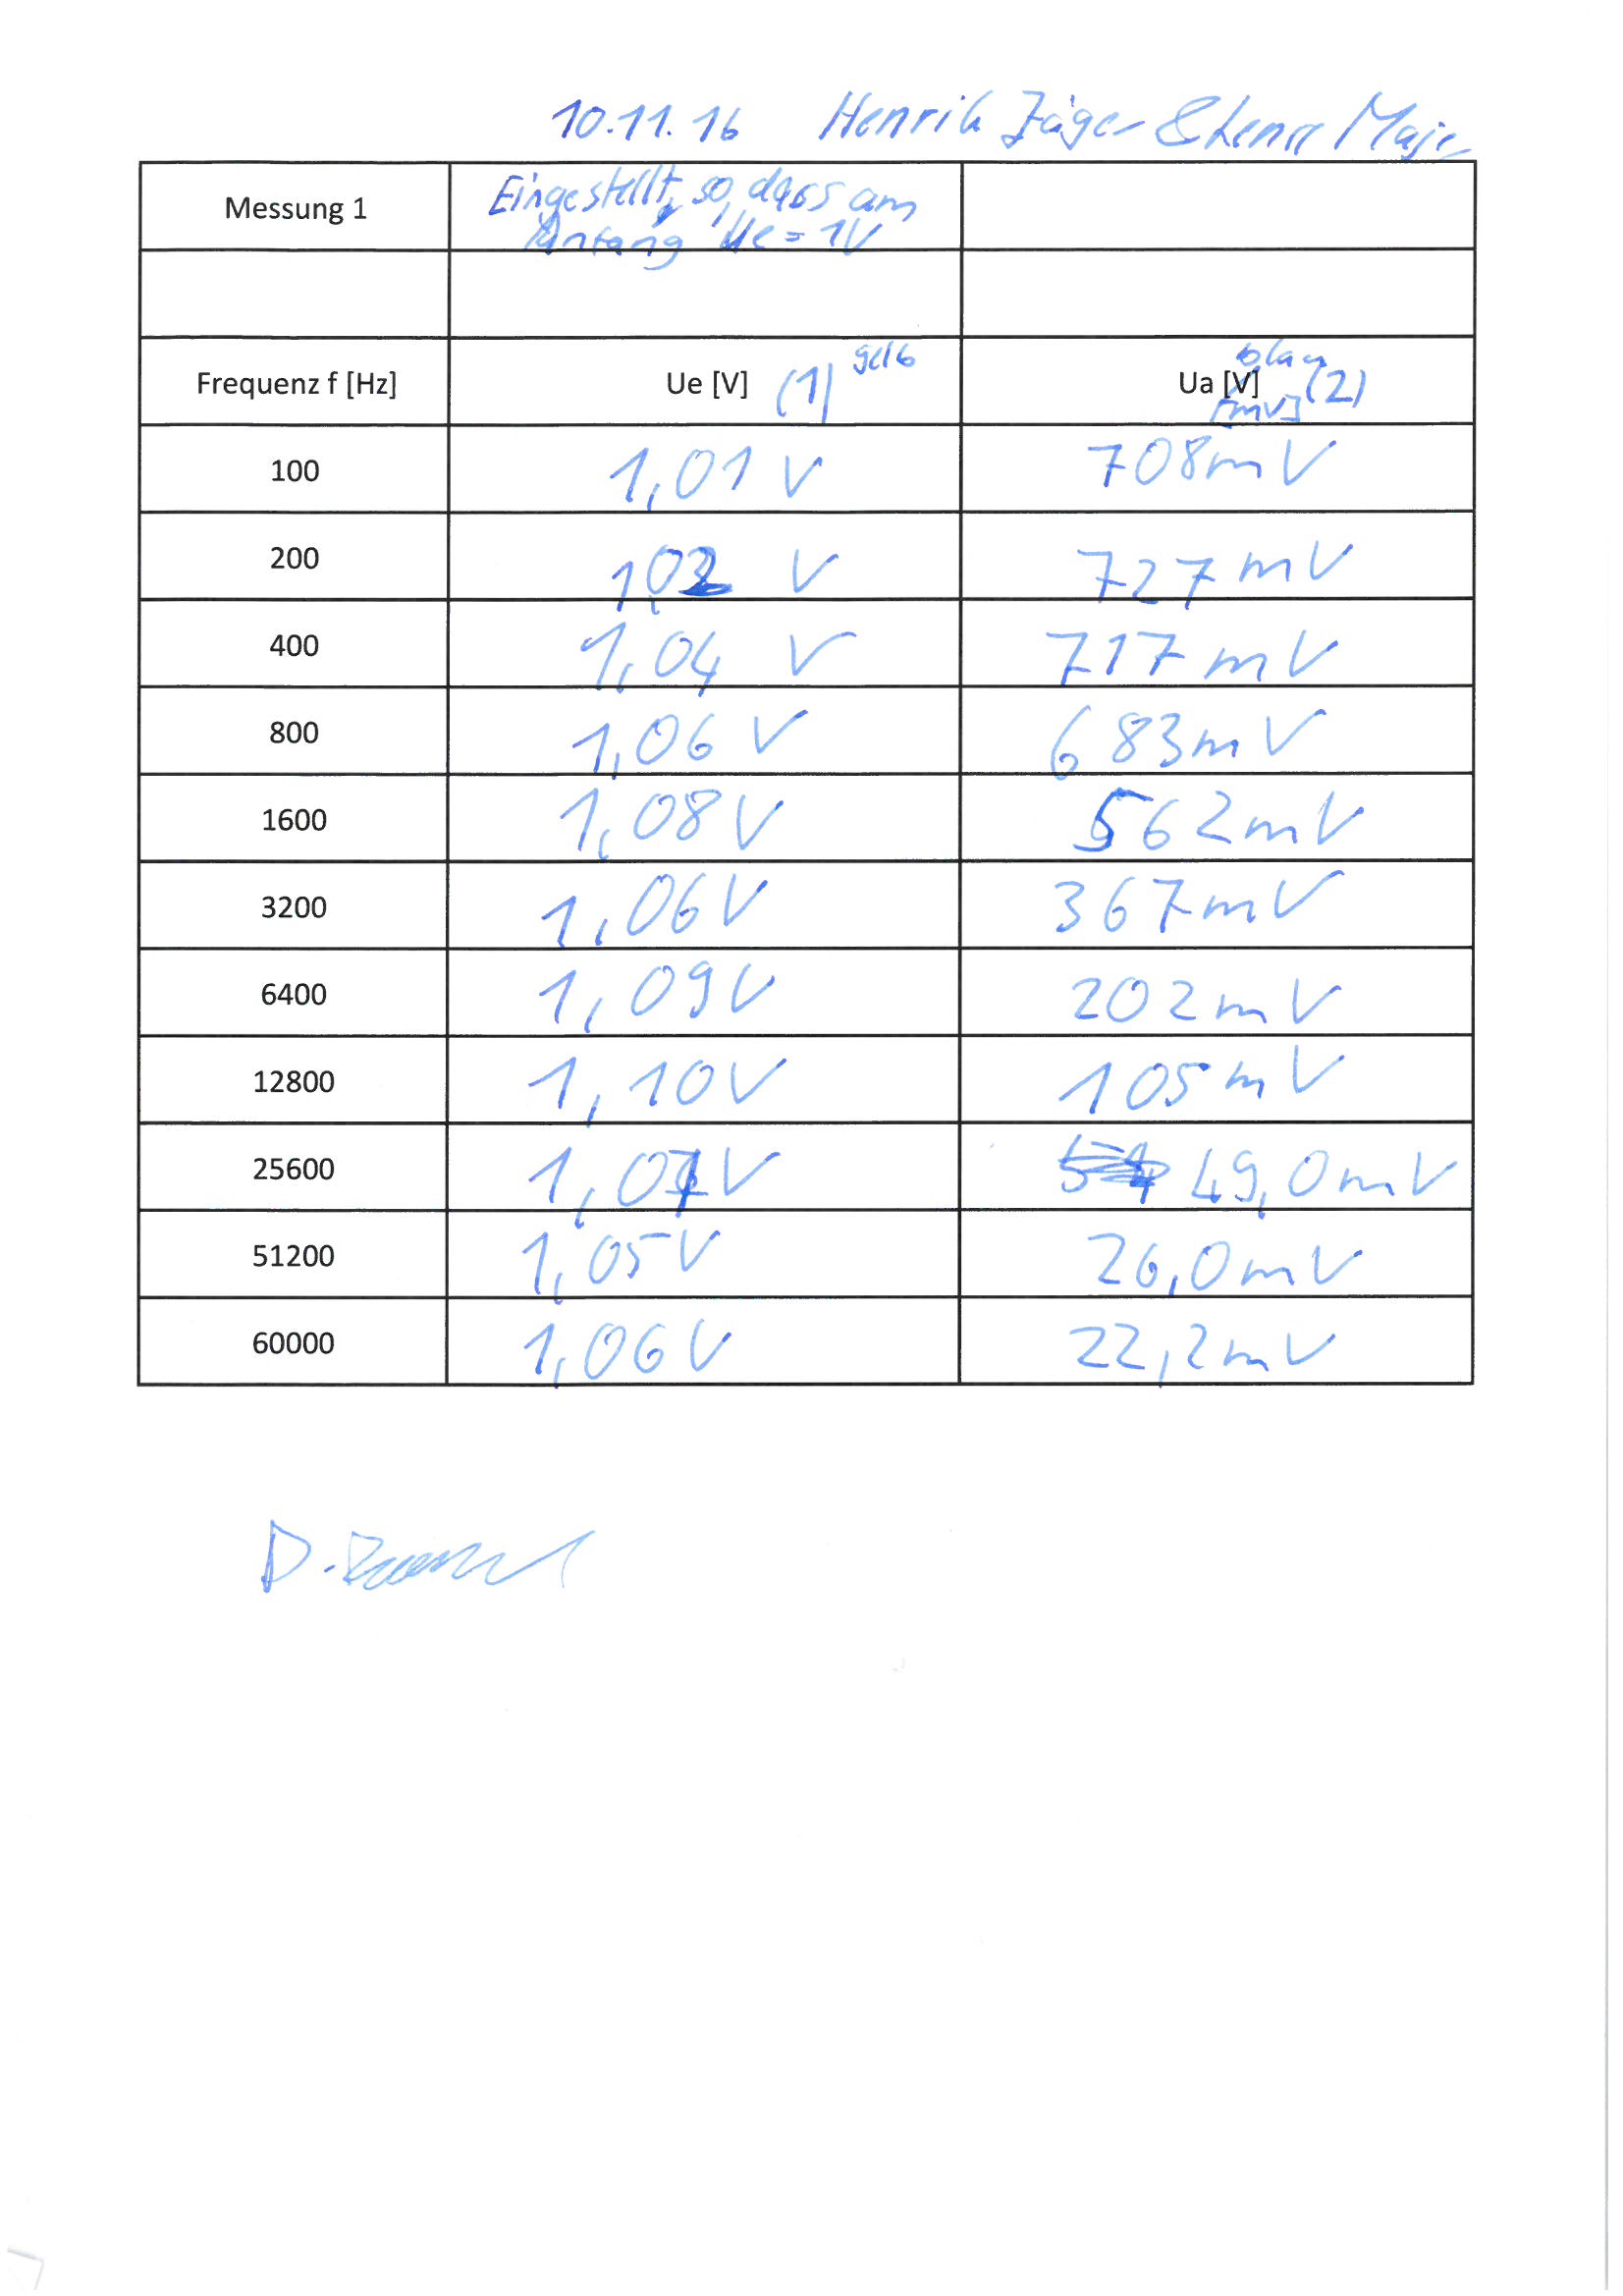 10.11.16 Henrik Jäger &
Messung 1 Eingestellt, so, dass am
Anfang Ue = 1V
Frequenz f [Hz] Ue [V] (1) gelb Ua [V] blau (2)
[mV]
100 1,01 V 708mV
200 1,02 V 727mV
400 1,04 V 717mV
800 1,06 V 683mV
1600 1,08V 562mV
3200 1,06V 367mV
6400 1,09V 202mV
12800 1,10V 105mV
25600 1,01V 49,0mV
51200 1,05V 26,0mV
60000 1,06V 22,2mV
D.